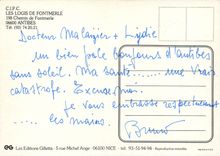 C.I.P.C.
LES LOGIS DE FONTMERLE
198 Chemin de Fontmerle
06600 ANTIBES
(93) 74.20.21
Docteurs Matagier + Lydie
un bien pâle bonjour d'antibes
sans soleil. Ma santé ..... une vraie
catastrophe. Excuses
je vous embrasse respectueusement
..... les mains.
Bruno
Les Editions Gilletta - 5 rue Michel Ange - 06100 NICE - tél : 93-51-96-98